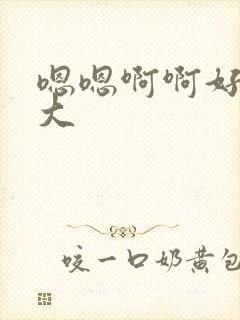 嗯嗯啊啊好
大
咬一口奶黄包